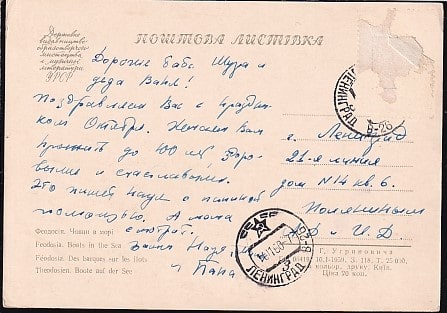 Державне
видавництво
образотворчого
мистецтва
і музичної
літератури
УРСР
ПОШТОВА ЛИСТІВКА
Дорогие баба Шура и
деда Ваня!
Поздравляем Вас с праздни
ком Октября. Желаем Вам
прожить до 100 лет здоро
выми и счастливыми.
Это пишет Надя с папиной
помощью. А мама
смотрит.
Ваши Надя,
Папа
г. Ленинград
21-я линия
дом №14 кв. 6.
ЛЕНИНГРАД
В-26
ЛЕНИНГРАД
В-26
Феодосія. Човни в морі
Feodosia. Boats in the Sea
Féodosia. Des barques sur les flots
Theodosien. Boote auf der See
Г. Угриновича
Ціна 20 коп.